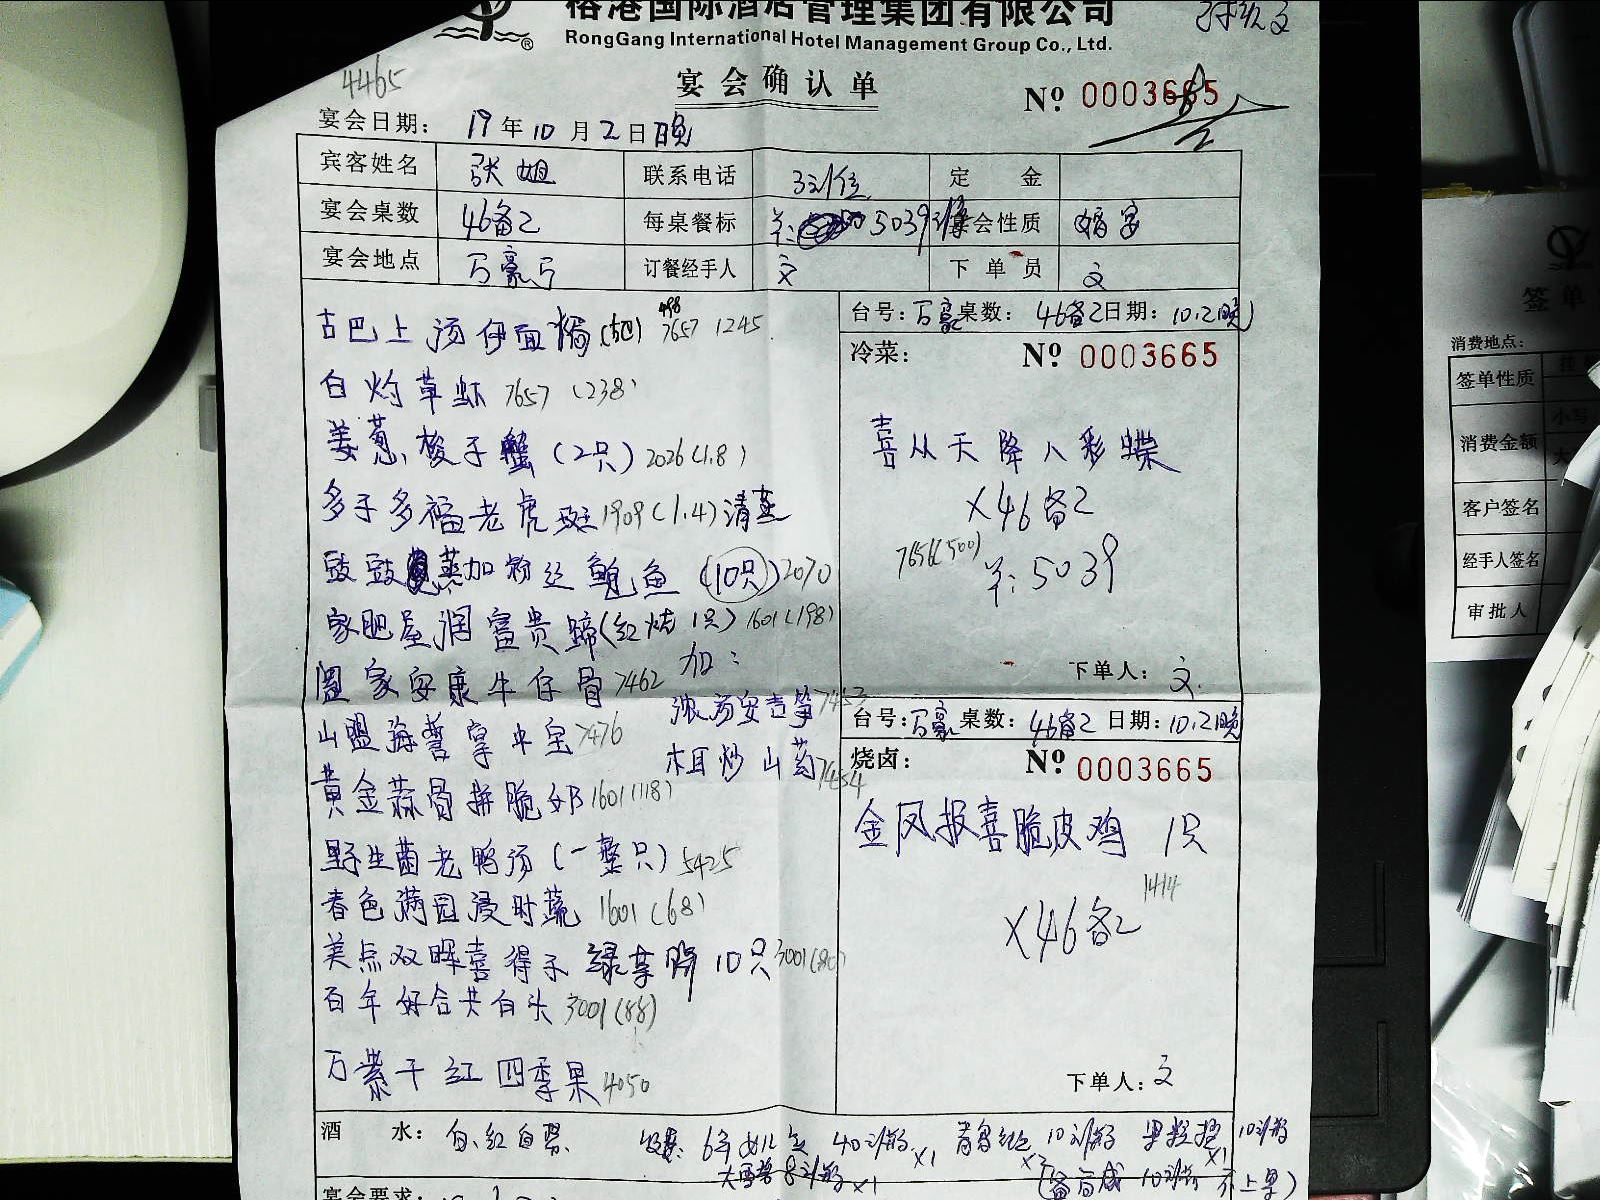 榕港国际酒店管理集团有限公司
RongGang International Hotel Management Group Co., Ltd.
®
4465
宴会确认单
Nº 0003665
宴会日期： 19年10月2日晚
宾客姓名 张姐 联系电话 定金
宴会桌数 46备2 每桌餐标 5039 宴会性质 婚宴
宴会地点 万豪厅 订餐经手人 文 下单员 文
古巴上汤伊面 7657 1245
白灼草虾 7657 (238)
姜葱梭子蟹（2只）2026(1.8)
多子多福老虎斑 1909(1.4) 清蒸
豉蒸加粉丝鲍鱼（10只）2070
家肥屋润富贵蹄（红烧1只）1601(198)
阖家安康牛仔骨 7462
加：
浓汤安吉笋 7453
山盟海誓掌中宝 7476
相炒山药 7454
黄金蒜骨拼脆奶 1601(118)
野生菌老鸭汤（一整只）5425
春色满园浸时蔬 1601(68)
美点双晖喜得子 10只 3001(80)
百年好合共白头 3001(88)
万紫千红四季果 4050
台号：万豪 桌数：46备2 日期：10.2晚
冷菜： Nº 0003665
喜从天降八彩蝶
X46备2
7656(500)
羊：5039
下单人：文
台号：万豪 桌数：46备2 日期：10.2晚
烧卤： Nº 0003665
金凤报喜脆皮鸡 1只
1414
X46备2
下单人：文
酒水： 白、红自带
宴会要求：
签单
消费地点：
签单性质
消费金额
小写
大
客户签名
经手人签名
审批人